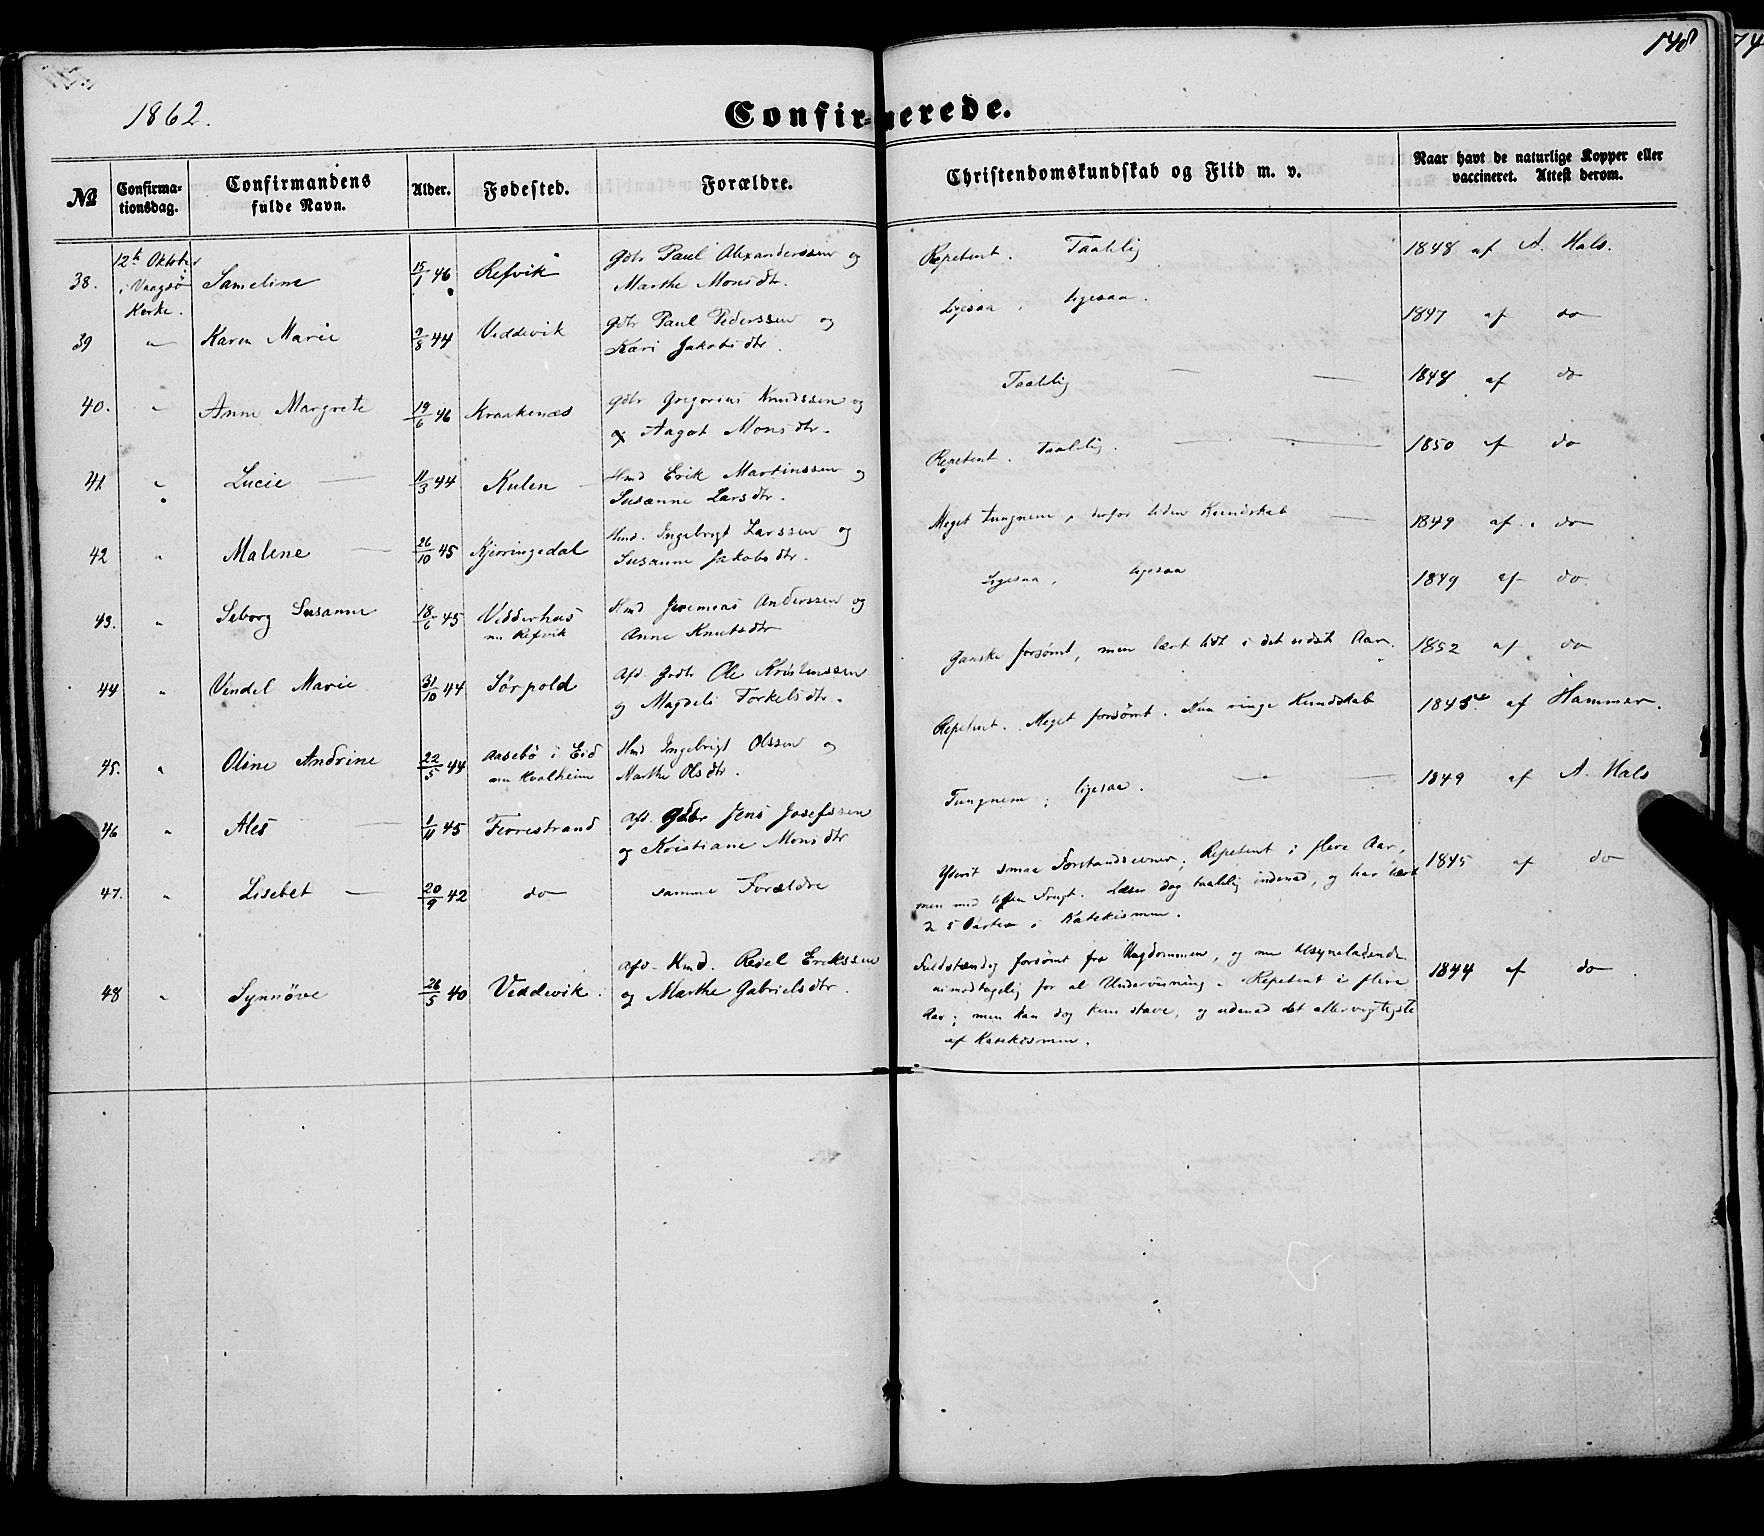 148
1862.
Confirmerede.
№
Confirma-
tionsdag.
Confirmandens
fulde Navn.
Alder.
Fødested.
Forældre.
Christendomskundskab og Flid m. v.
Naar havt de naturlige Kopper eller
vaccineret. Attest derom.
38. 12te Oktober i Vaagsø Kirke. Sameline 15/1 46 Refvik Gdbr Paul Alexanderssen og
Marthe Monsdtr. Repetent. Taalelig 1848 af A. Hals.
39 " Karen Marie 2/8 44 Veddevik Gdbr Paul Pederssen og
Kari Jakobsdtr. Ligesaa, ligesaa. 1847 af do
40. " Anne Margrete 19/6 46 Kraakenæs Gdbr Gregorius Knudssen og
Aagot Monsdtr. Taalelig 1848 af do
41 " Lucie 11/3 44 Kulen Hmd Erik Martinssen og
Susanne Larsdtr. Repetent. Taalelig. 1850 af do
42 " Malene 26/10 45 Kjerringedal Hmd. Ingebrigt Larssen og
Susanne Jakobsdtr. Meget tungnem, derfor liden Kundskab 1849 af do
43. " Seborg Susanne 18/6 45 Vedderhus
nu Refvik Hmd Jeremias Anderssen og
Anne Knutsdtr Ligesaa, ligesaa 1849 af do
44 " Vendel Marie 31/10 44 Sørpold Afd. Grdbr Ole Kristenssen
og Magdeli Torkelsdtr. Ganske forsømt, men lært lidt i det sidste Aar. 1852 af do
45. " Oline Andrine 22/5 44 Aasebø i Eid
nu Kvalheim Hmd Ingebrigt Olssen og
Marthe Olsdtr. Repetent. Meget forsømt. Kun ringe Kundskab 1845 af Hammer.
46 " Ales 1/11 45 Ferrestrand Afd. Gdbr Jens Josefssen
og Kristiane Monsdtr Tungnem; ligesaa. 1849 af A. Hals
47. " Lisebet 20/9 42 do samme Forældre Yderst smaa Forstandsevner; Repetent i flere Aar,
men med liden Frugt. Læser dog taalelig indenad, og har lært
de 5 Parter i Katekismen. 1845 af do
48 " Synnøve 26/5 40 Veddevik. Afd. Hmd. Reiel Erikssen
og Marthe Gabrielsdtr. Fuldstændig forsømt fra Ungdommen, og nu tilsyneladende
uimodtagelig for al Undervisning. Repetent i flere
Aar; men kan dog kun stave, og udenad det allervigtigste
af Katekismen. 1844 af do